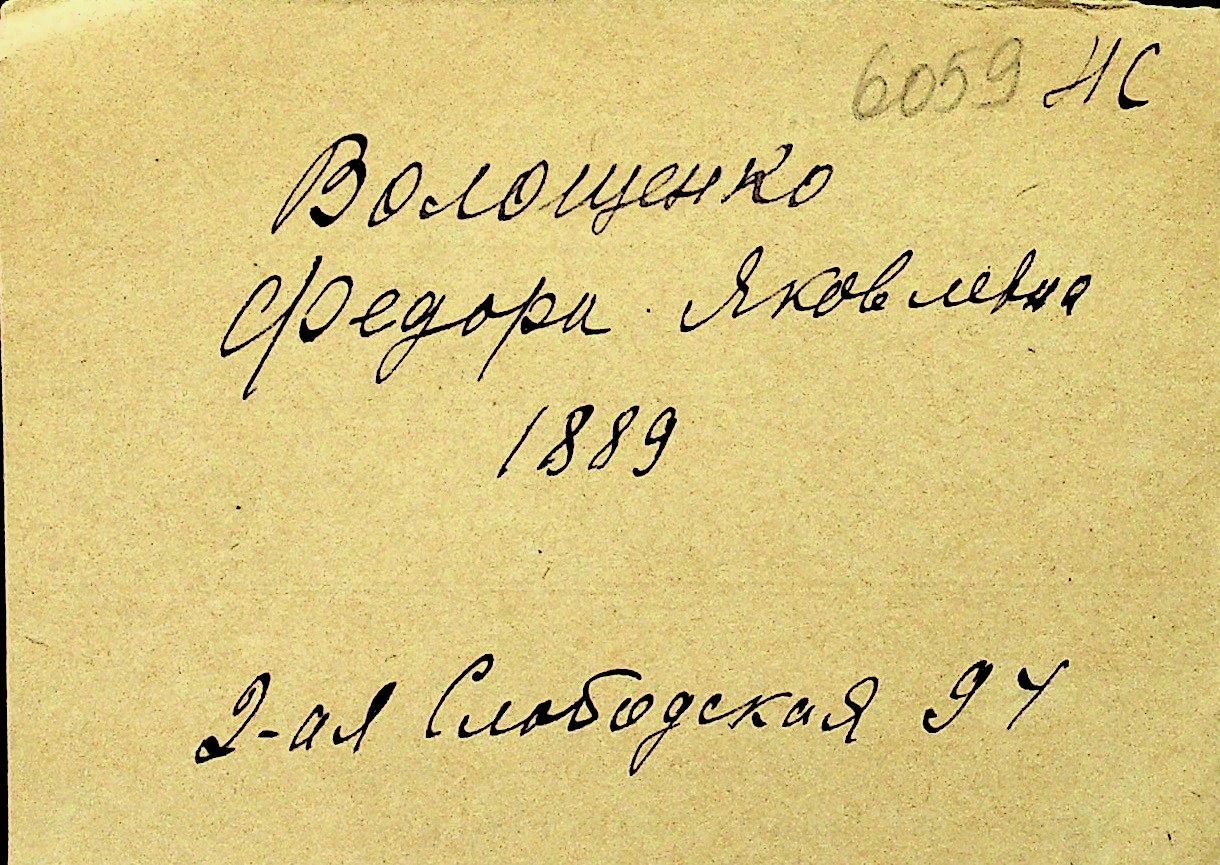 6059 НС
Волощенко
Федора Яковлевна
1889
2-ая Слободская 94